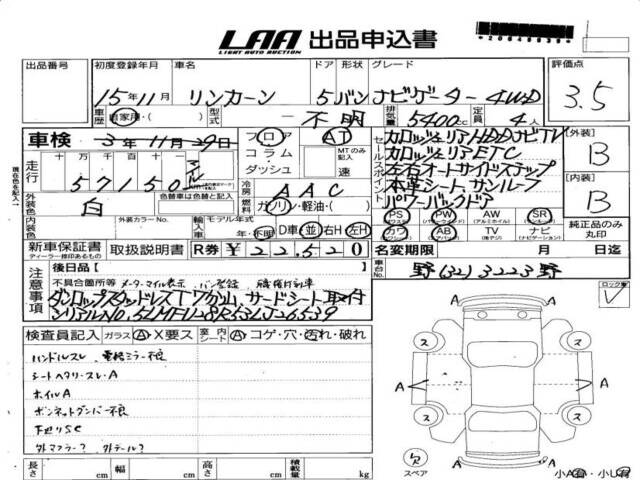 LAA 出品申込書
LIGHT AUTO AUCTION
出品番号 初度登録年月 車名 ドア 形状 グレード 評価点
15年11月 リンカーン 5 バン ナビゲーター 4WD 3.5
車歴 自家用・( ) 型式 不明 排気量 5400cc 定員 4人
車検 3年11月29日 フロア AT
コラム MTのみ記入
ダッシュ 速
走行 十万千百十
57150 マイル
セールスポイント
カロッジェリアHDDナビTV
カロッジェリアETC
左右オートサイドステップ
本革シート、サンルーフ
パワーバックドア
[外装] B
[内装] B
外装色 白 色替車は色替と記入
冷房 AAC
燃料 ガソリン・軽油・( )
内装色 外装カラーNo. 輸入車 モデル年式
年・不明 D車・並 右H・左H
PS PW AW SR
(パワステ) (パワーウインドー) (アルミホイル) (サンルーフ)
カワ AB TV ナビ
(エアバッグ) (ナビゲーション)
純正品のみ丸印
新車保証書 取扱説明書 R券 ¥22,520 名変期限 月 日迄
ディーラー捺印あるもの
注意事項
後日品 [ ]
不具合箇所等 メーターマイル表示、バン登録
ダンロップスタッドレスTワ
サードシート取付
シリアルNO. 5LMFU28R53LJ26539
車台No. 野(32)3223野
ロック車
検査員記入 ガラス A・X要ス 室内シート A・コゲ・穴・汚れ・破れ
ハンドルスレ、電格ミラー不良
シートヘタリ・スレ・A
ホイルA
ボンネットダンパー不良
下廻りSC
外マフラー? 外テール?
A A A A
ス ス ス ス
欠
スペア
小A有・小U有
長さ cm 幅 cm 高さ cm 積載量 kg
現在色を記入